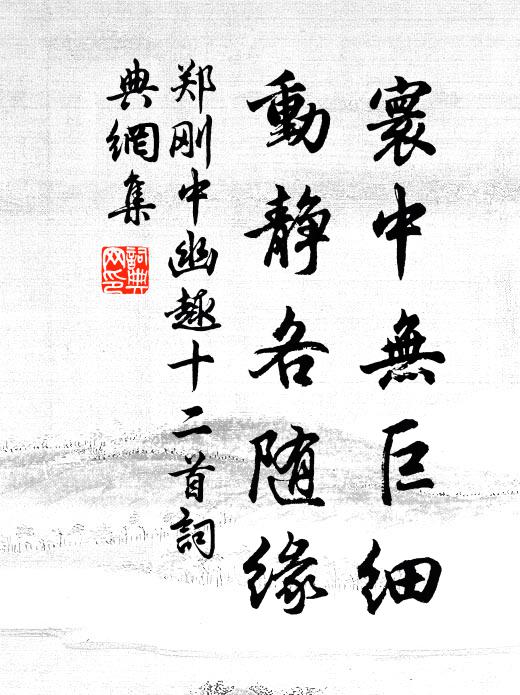 寰中無巨细
動静各随緣
郑刚中幽趣十二首詞
典網集
詞典
网印